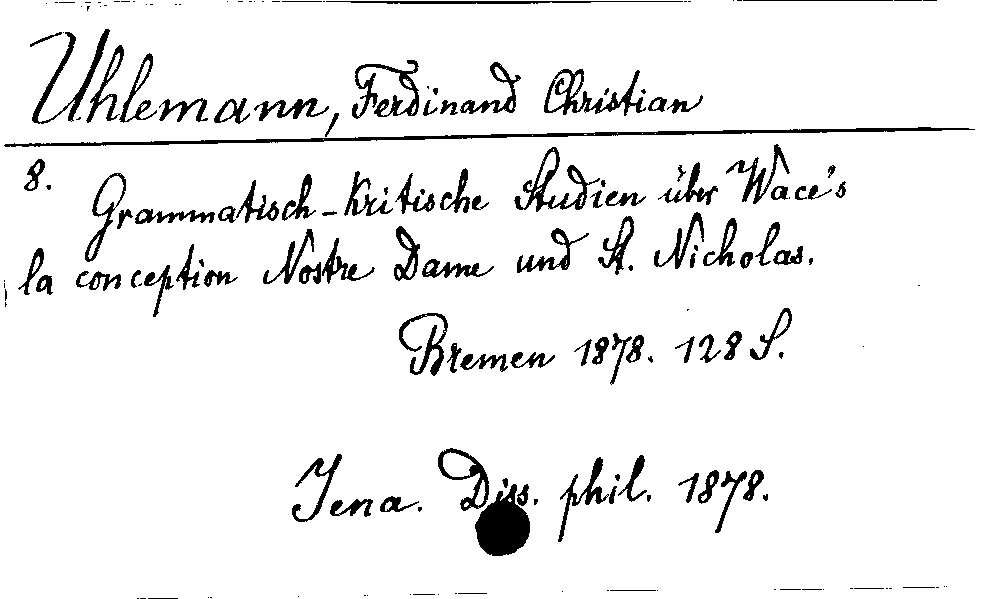 Uhlemann, Ferdinand Christian
8.
Grammatisch-kritische Studien über Wace's
la conception Nostre Dame und St. Nicholas.
Bremen 1878. 128 S.
Jena. Diss. phil. 1878.